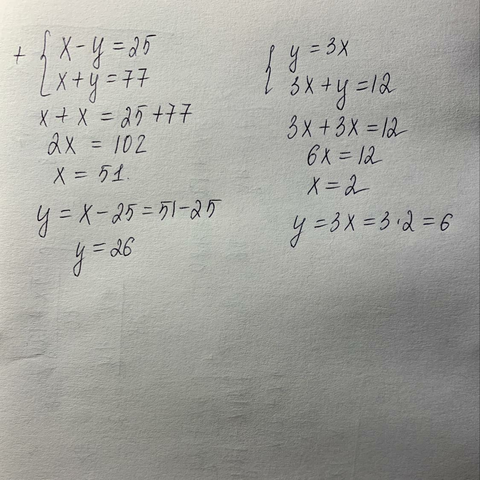 + { x - y = 25
x + y = 77
x + x = 25 + 77
2x = 102
x = 51.
y = x - 25 = 51 - 25
y = 26
{ y = 3x
3x + y = 12
3x + 3x = 12
6x = 12
x = 2
y = 3x = 3 · 2 = 6